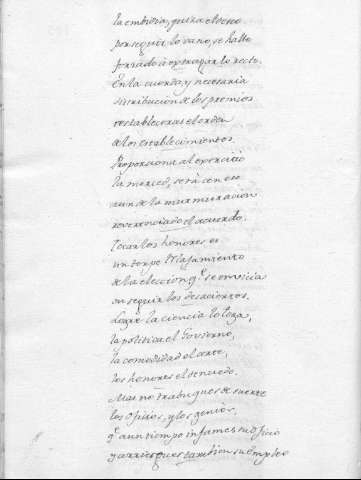 la embidia, quita el seso
por seguir lo vano, se halla
forzado à estragar lo recto.
En la cuerda, y necesaria
distribucion de los premios
restableceras el orden
de los establecimientos.
Proporciona al exercicio
la merced, será con eso
aun de la murmuracion
reverenciado el acuerdo.
Trocar los honores es
un torpe
de la eleccion, qᵉ se envicia
en seguir los desaciertos.
Logre la ciencia la toga,
la politica el Govierno,
la comodidad el arte,
los honores el denuedo.
Mas no trabuques de suerte
los oficios, y los genios,
qᵉ a un tiempo infames su oficio
y arriesgues tambien su empleo